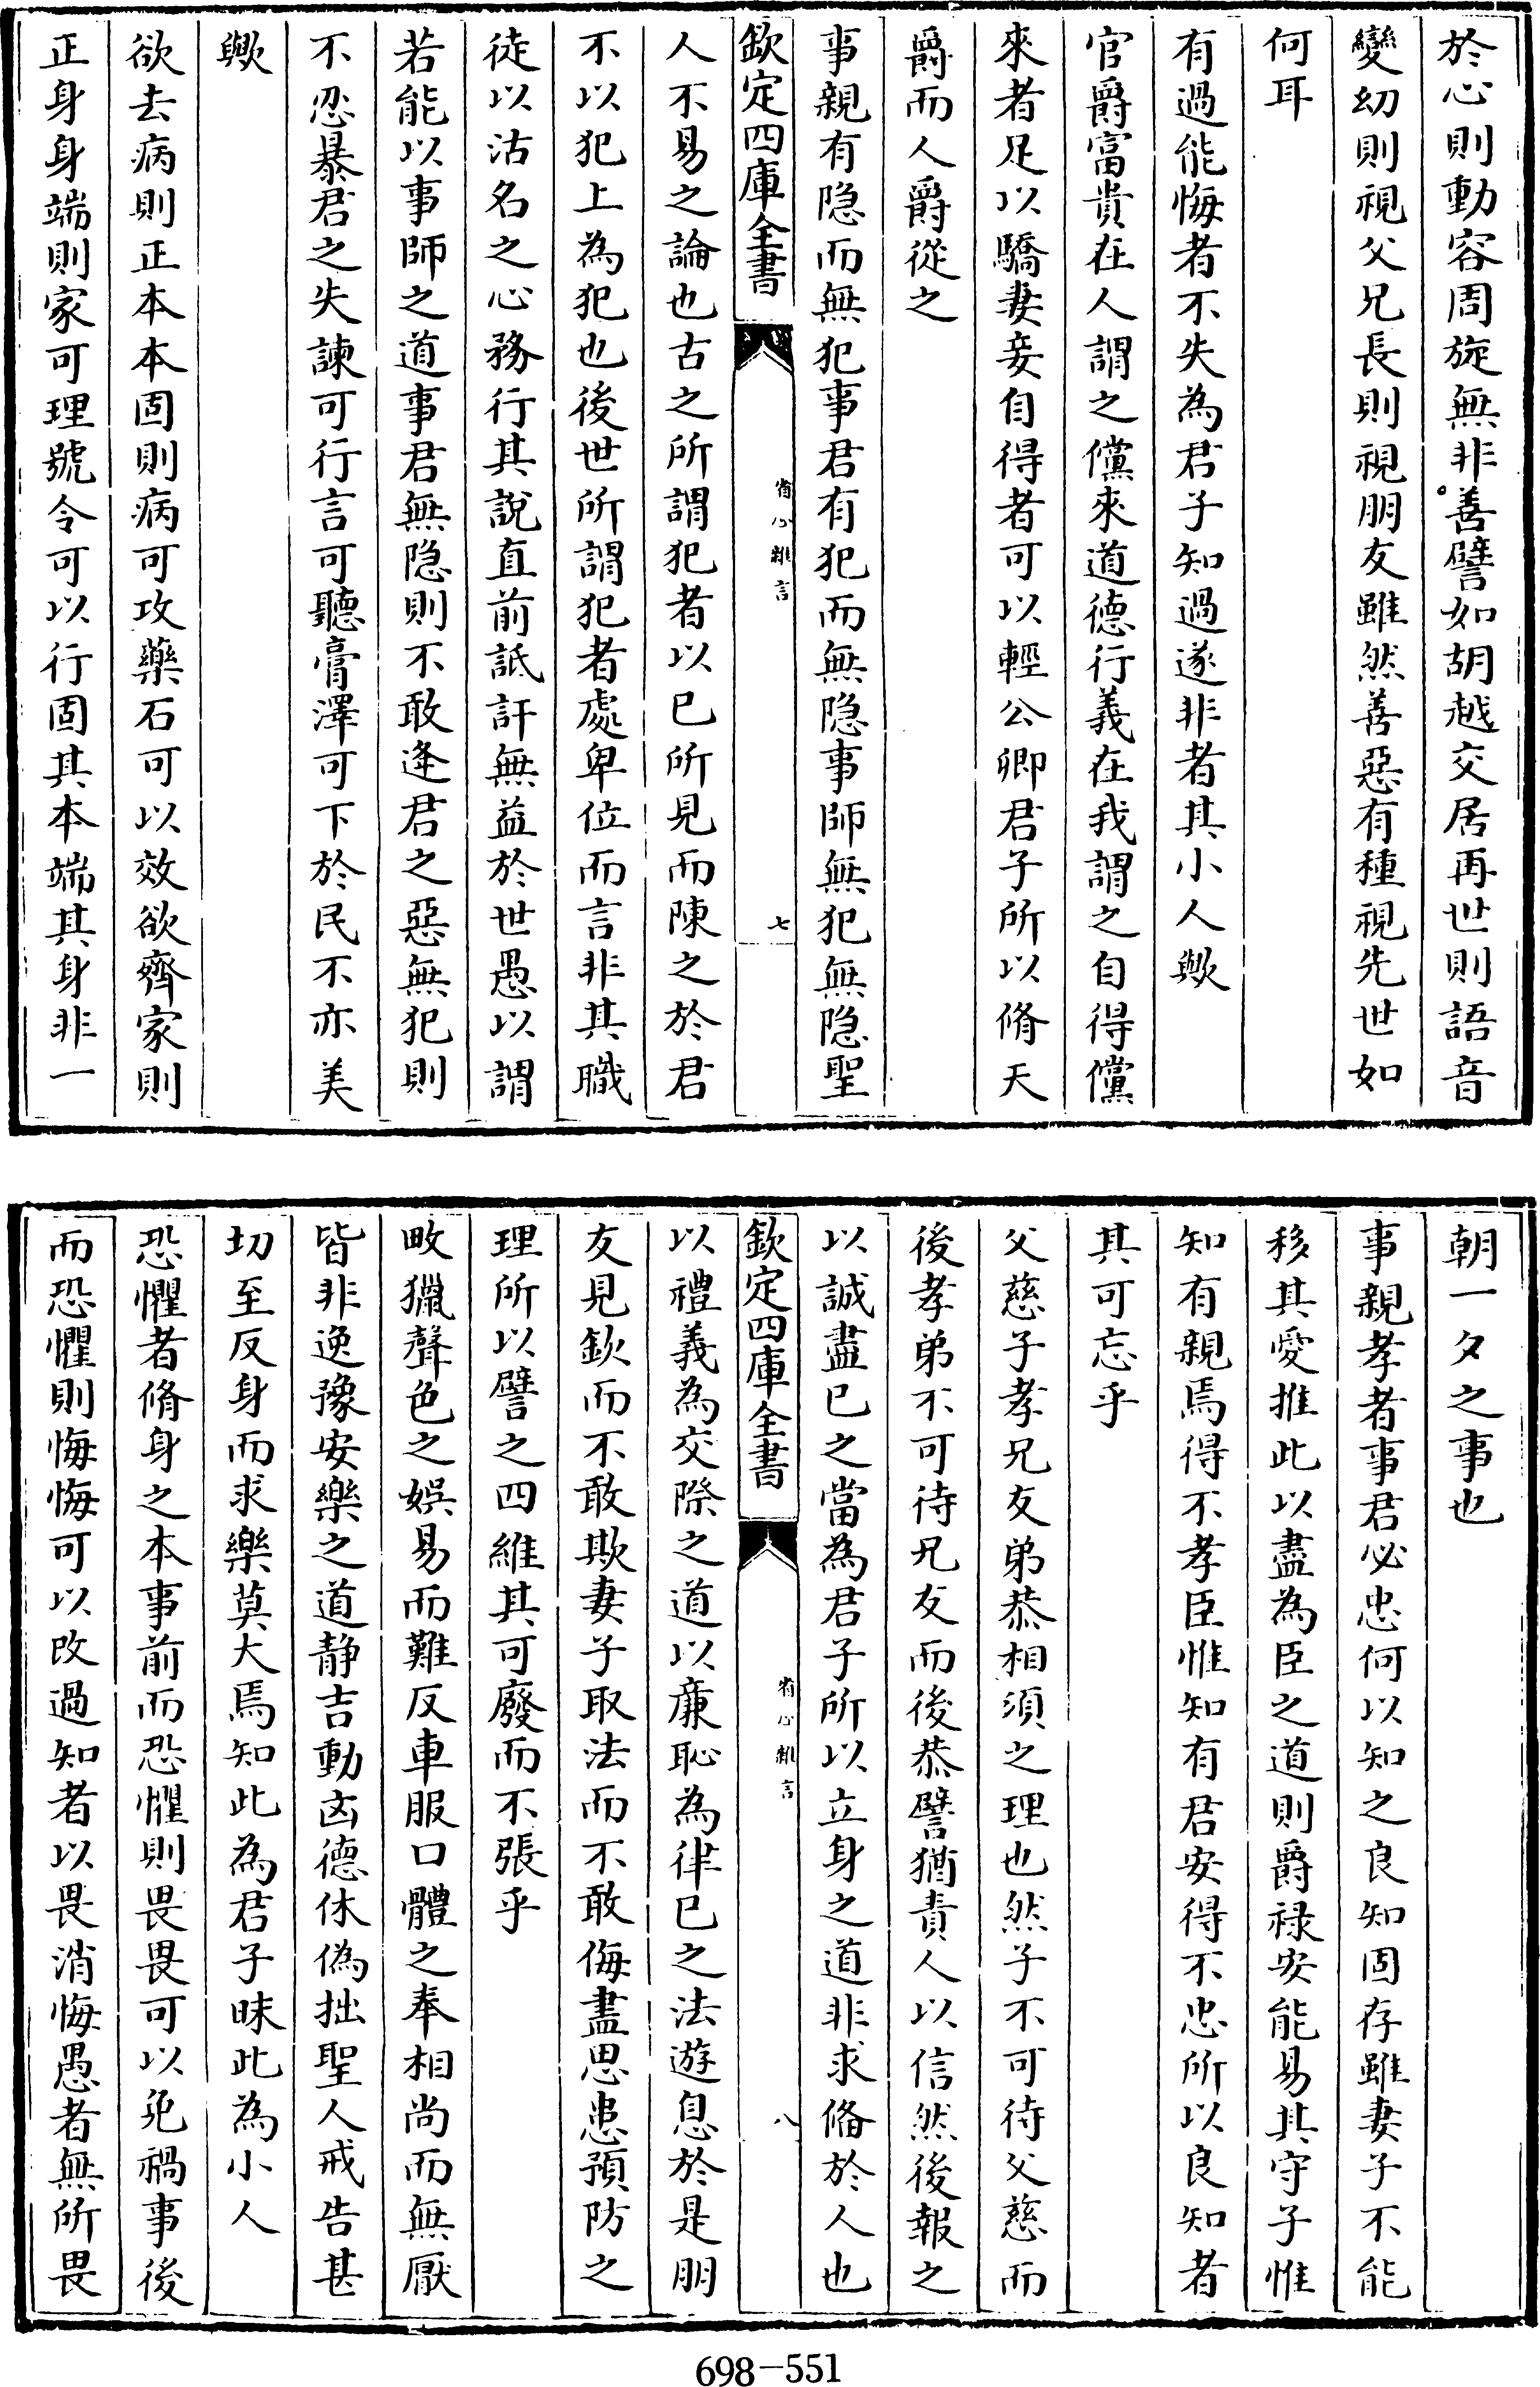 於心則動容周旋無非善譬如胡越交居再世則語音
變幼則視父兄長則視朋友雖然善惡有種視先世如
何耳
有過能悔者不失為君子知過遂非者其小人歟
官爵富貴在人謂之儻來道德行義在我謂之自得儻
來者足以驕妻妾自得者可以輕公卿君子所以脩天
爵而人爵從之
事親有隐而無犯事君有犯而無隐事師無犯無隐聖
欽定四庫全書
省心雜言
七
人不易之論也古之所謂犯者以已所見而陳之於君
不以犯上為犯也後世所謂犯者處卑位而言非其職
徒以沽名之心務行其說直前詆訐無益於世愚以謂
若能以事師之道事君無隐則不敢逢君之惡無犯則
不忍暴君之失諫可行言可聽膏澤可下於民不亦美
歟
欲去病則正本本固則病可攻藥石可以效欲齊家則
正身身端則家可理號令可以行固其本端其身非一
朝一夕之事也
事親孝者事君必忠何以知之良知固存雖妻子不能
移其愛推此以盡為臣之道則爵祿安能易其守子惟
知有親焉得不孝臣惟知有君安得不忠所以良知者
其可忘乎
父慈子孝兄友弟恭相須之理也然子不可待父慈而
後孝弟不可待兄友而後恭譬猶責人以信然後報之
以誠盡已之當為君子所以立身之道非求脩於人也
欽定四庫全書
省心雜言
八
以禮義為交際之道以亷恥為律已之法遊息於是朋
友見欽而不敢欺妻子取法而不敢侮盡思患預防之
理所以譬之四維其可廢而不張乎
畋獵聲色之娛易而難反車服口體之奉相尚而無厭
皆非逸豫安樂之道静吉動凶德休偽拙聖人戒告甚
切至反身而求樂莫大焉知此為君子昧此為小人
恐懼者脩身之本事前而恐懼則畏畏可以免禍事後
而恐懼則悔悔可以改過知者以畏消悔愚者無所畏
698-551